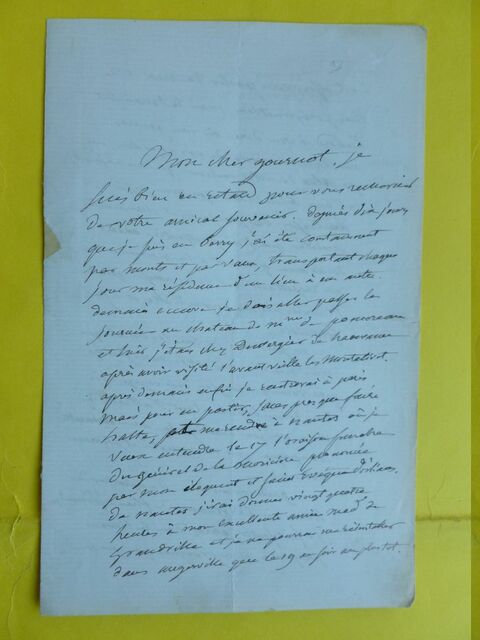 Mon cher gournot, je
suis bien en retard pour vous remercier
de votre amical souvenir. depuis dix jours
que je suis en berry j'ai été constamment
par monts et par vaux, transportant chaque
jour ma résidence d'un lieu à un autre.
demain encore je dois aller passer la
journée au château de mme de
et hier j'étais chez Duvergier de hauranne
après avoir visité l'avant veille les Montalivet.
après demain enfin je rentrerai à paris
mais pour en partir, sans presque faire
halte, me rendre à nantes où je
veux entendre le 17 l'oraison funèbre
du général de la moricière prononcée
par mon éloquent et saint évêque d'orléans.
de nantes j'irai donner vingt quatre
heures à mon excellente amie mad. de
grandville et je ne pourrai me réinstaller
dans augerville que le 19 au soir au plus tôt.